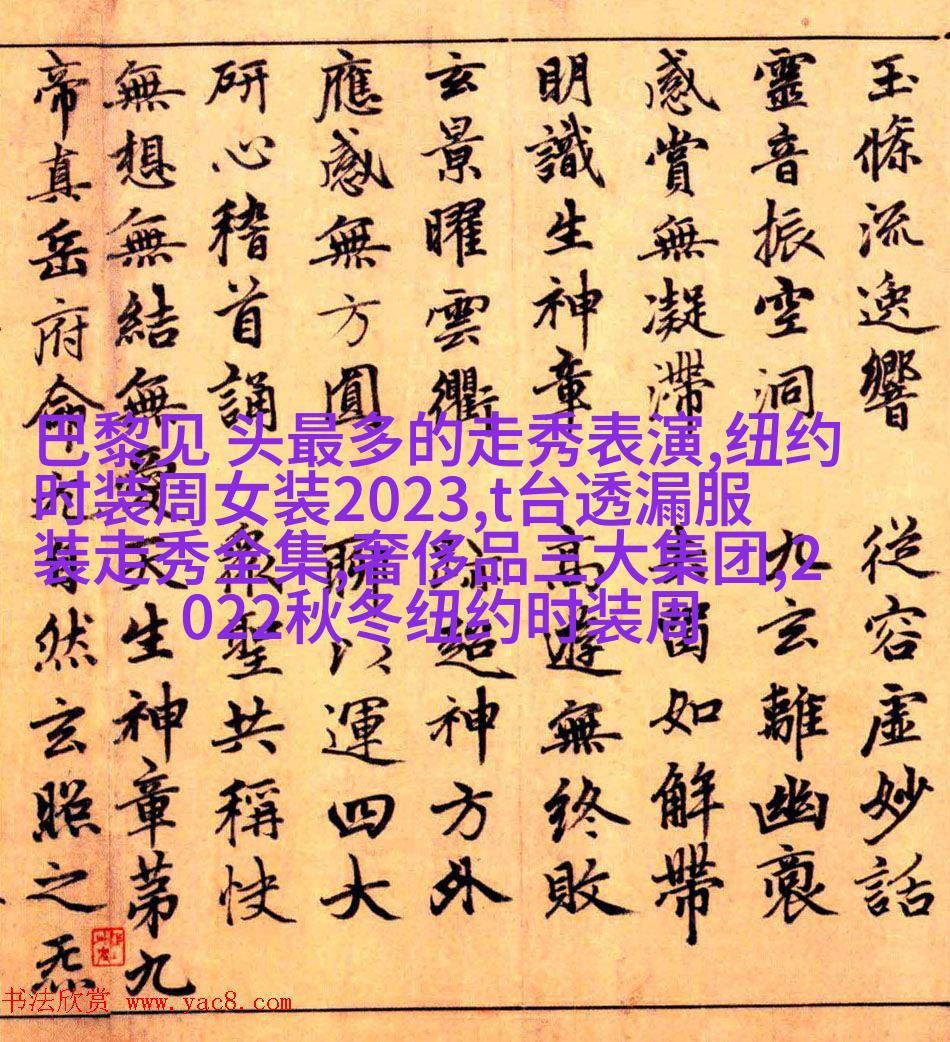 玉條流逸響從容虛妙話
靈音振空洞九玄離幽
感賞無凝滯如解帶
明識生神章高遊無終敗
玄景曜雲衢超神方外
應感無方圓聊以運四大
研心稽首誦眾聖共稱快
無想無結無愛天生神章第九
帝真岳府自然玄照之炁
巴黎见 头最多的走秀表演,纽约
时装周女装2023,t台透漏服
装走秀全集,奢侈品三大集团,2
022秋冬纽约时装周
书法欣赏 www.yac8.com